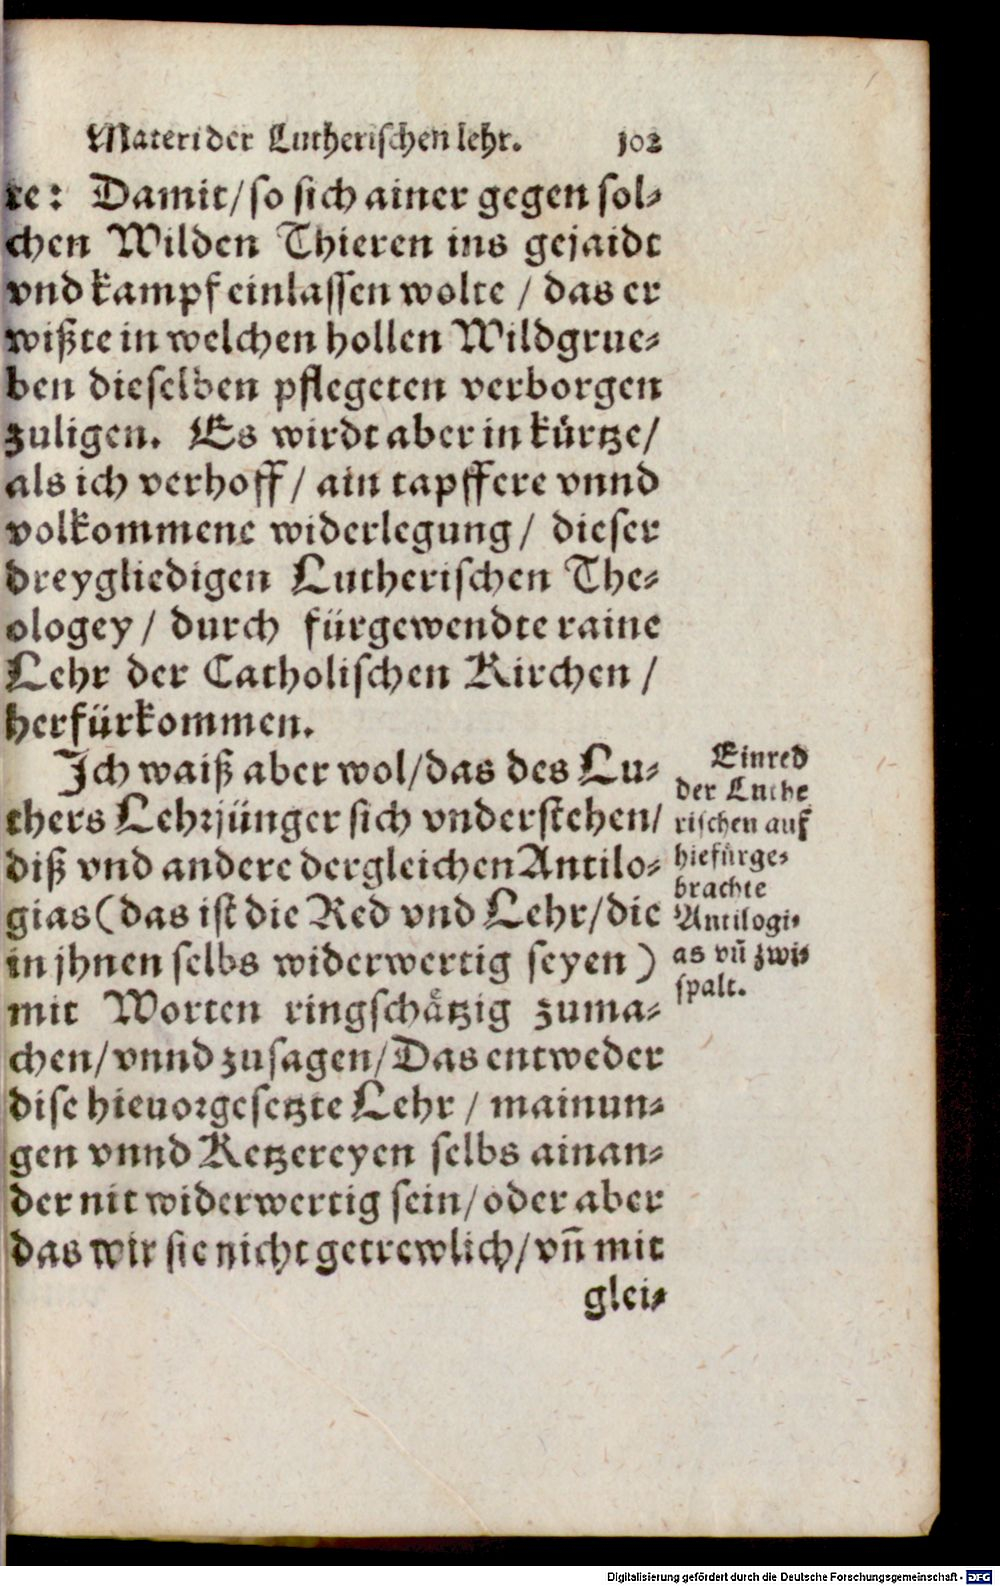 Materi der Lutherischen lehr. 102
te: Damit/ so sich ainer gegen sol-
chen Wilden Thieren ins gejaidt
vnd kampf einlassen wolte / das er
wißte in welchen hollen Wildgrue-
ben dieselben pflegeten verborgen
zuligen. Es wirdt aber in kürtze/
als ich verhoff / ain tapffere vnnd
volkommene widerlegung / dieser
dreygliedigen Lutherischen The-
ologey / durch fürgewendte raine
Lehr der Catholischen Kirchen /
herfürkommen.
Ich waiß aber wol/ das des Lu-
thers Lehrjünger sich vnderstehen/
diß vnd andere dergleichen Antilo-
gias (das ist die Red vnd Lehr/ die
in jhnen selbs widerwertig seyen)
mit Worten ringschåtzig zuma-
chen/ vnnd zusagen/ Das entweder
dise hieuorgesetzte Lehr / mainun-
gen vnnd Ketzereyen selbs ainan-
der nit widerwertig sein/ oder aber
das wir sie nicht getrewlich/ vn̄ mit
glei-
Einred
der Luthe
rischen auf
hiefürge-
brachte
Antilogi-
as vn̄ zwi-
spalt.
Digitalisierung gefördert durch die Deutsche Forschungsgemeinschaft - DFG